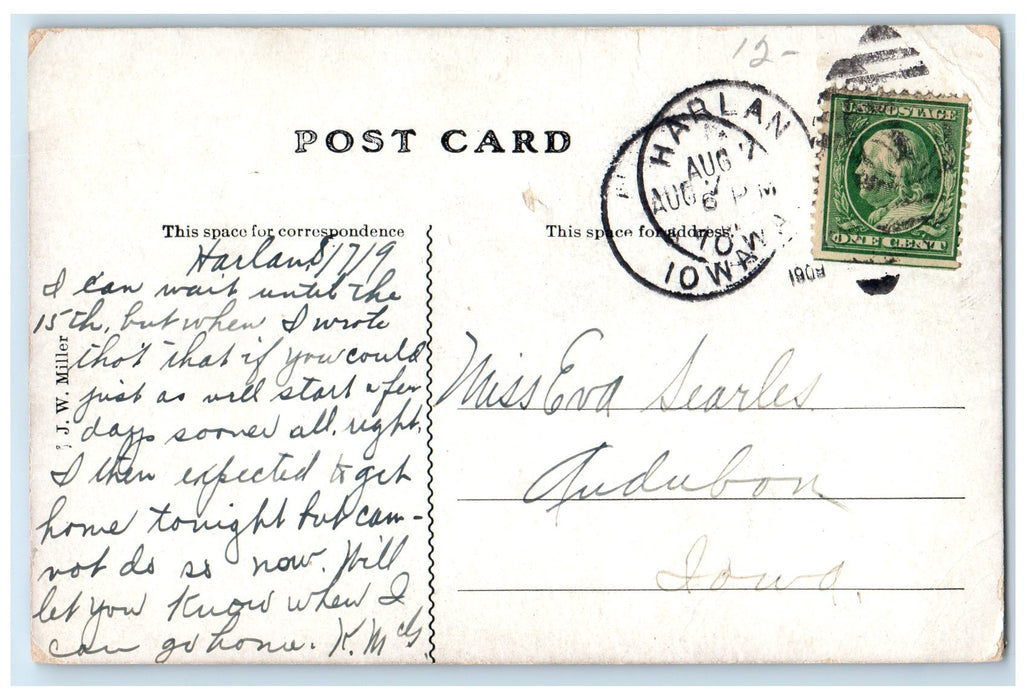 12-
POST CARD
U.S. POSTAGE
ONE CENT
HARLAN
AUG
AUG 7
6 PM
'10
IOWA
This space for correspondence
This space for address.
Harlan 8/7/9
I can wait until the
15th, but when I wrote
thot that if you could
just as well start a few
days sooner all right.
I then expected to get
home tonight but can-
not do so now. Will
let you know when I
can go home. K. McG
J. W. Miller
Miss Eva Searles
Audubon
Iowa.